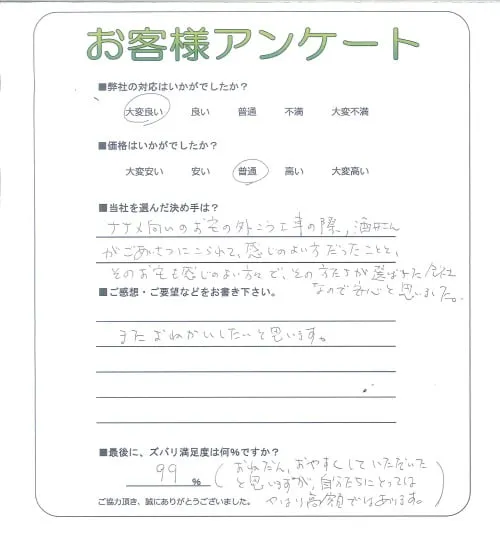 お客様アンケート
■弊社の対応はいかがでしたか？
大変良い 良い 普通 不満 大変不満
■価格はいかがでしたか？
大変安い 安い 普通 高い 大変高い
■当社を選んだ決め手は？
ナナメ向いのお宅の外こう工事の際、酒井さん
がごあいさつにこられて、感じのよい方だったことと、
そのお宅も感じのよい方々で、その方たちが選ばれた会社
なので安心と思いました。
■ご感想・ご要望などをお書き下さい。
またおねがいしたいと思います。
■最後に、ズバリ満足度は何％ですか？
99 %
(おねだん、おやすくしていただいた
と思いますが、自分たちにとっては
やはり高額ではあります。)
ご協力頂き、誠にありがとうございました。